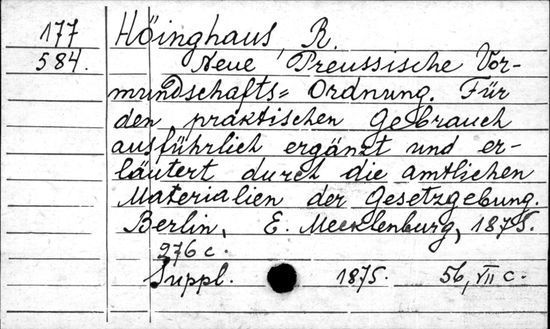 177 Höinghaus, R.
584. Neue Preussische Vor-
mundschafts= Ordnung. Für
den praktischen Gebrauch
ausführlich ergänzt und er-
läutert durch die amtlichen
Materialien der Gesetzgebung.
Berlin, E. Mecklenburg, 1875.
276 c.
Suppl. 1875. 56, VII c.